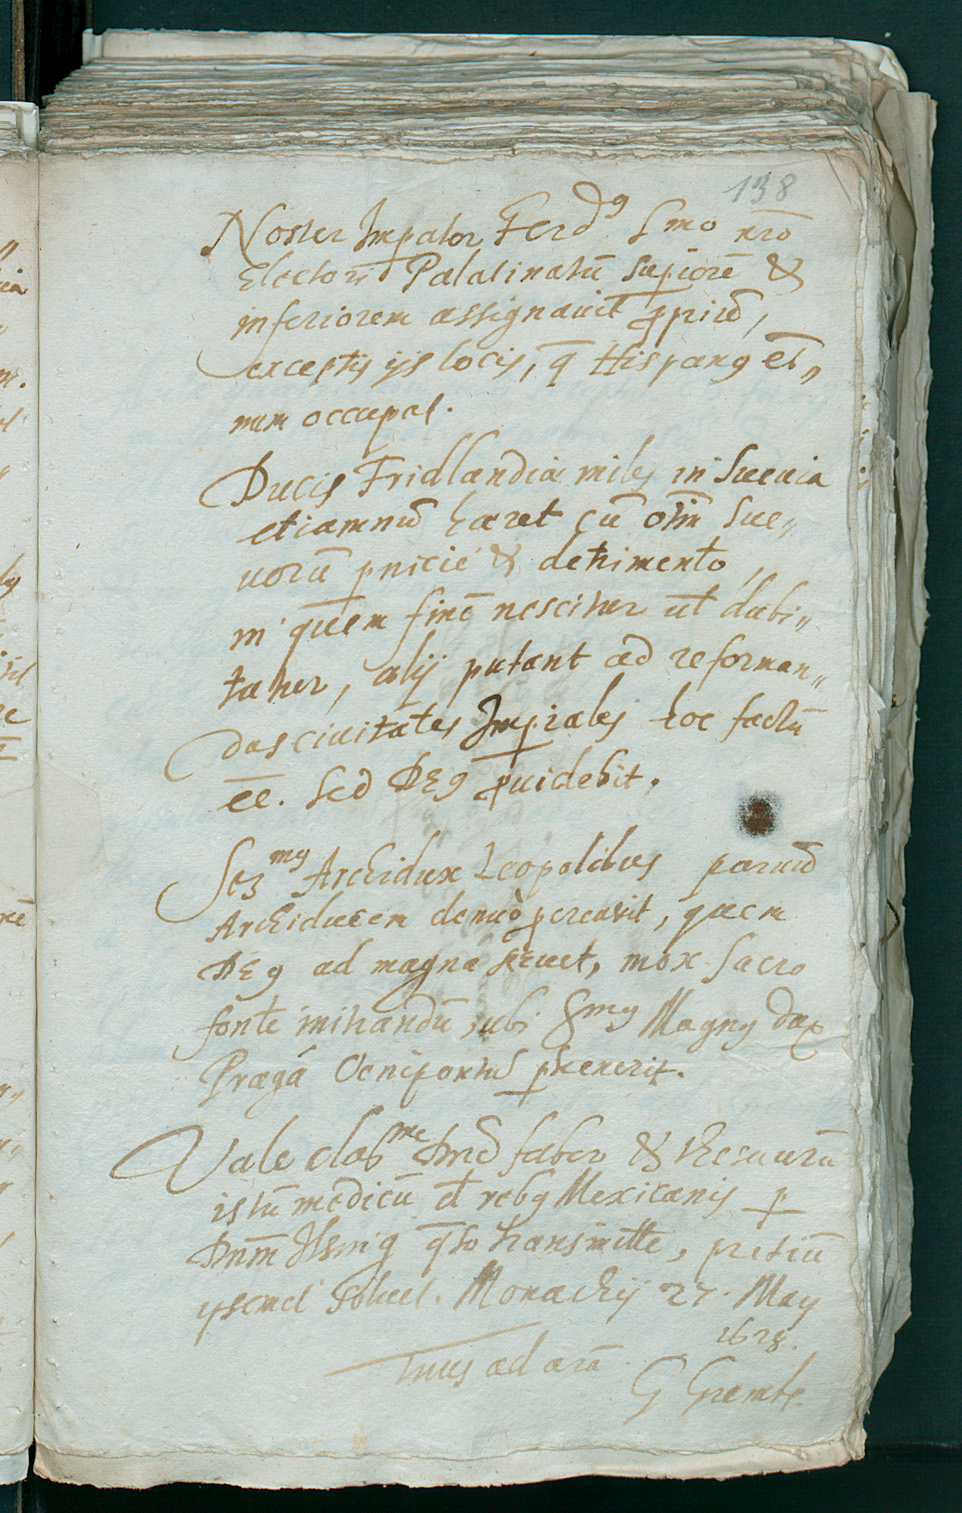 138
Noster Impator Ferd9 Smo nro
Electori Palatinatū supiorē &
inferiorem assignavit ppriū,
exceptis ijs locis, q Hispang et„
num occupat.
Ducis Fridlandiæ miles in Sueuia
etiamnū hæret cū oīm Sue„
uorū pnicie & detrimento,
in quem finē nescitur ut dubi„
tatur, alij putant ad reforman„
das ciuitates Impiales hoc factū
ēē. Sed DE9 puidebit.
Serms Archidux Leopoldus paruū
Archiducem denuò pcreavit, quem
DE9 ad magna seruet, mox sacro
fonte intrandū ubi Smus Magn9 Dux
Pragâ Oenipontū puenerit.
Vale clarme Dne Faber & thesaurū
istū medicū et rebg Mexicanis p
Dnm qto transmitte, pretiū
solvet. Monachij 27. May
1628.
Tuus ad arā
G